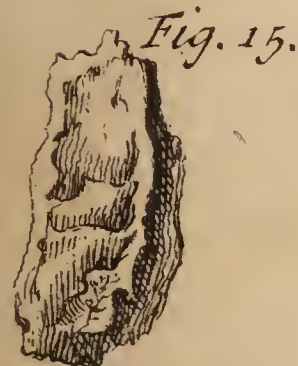 Fig. 15.